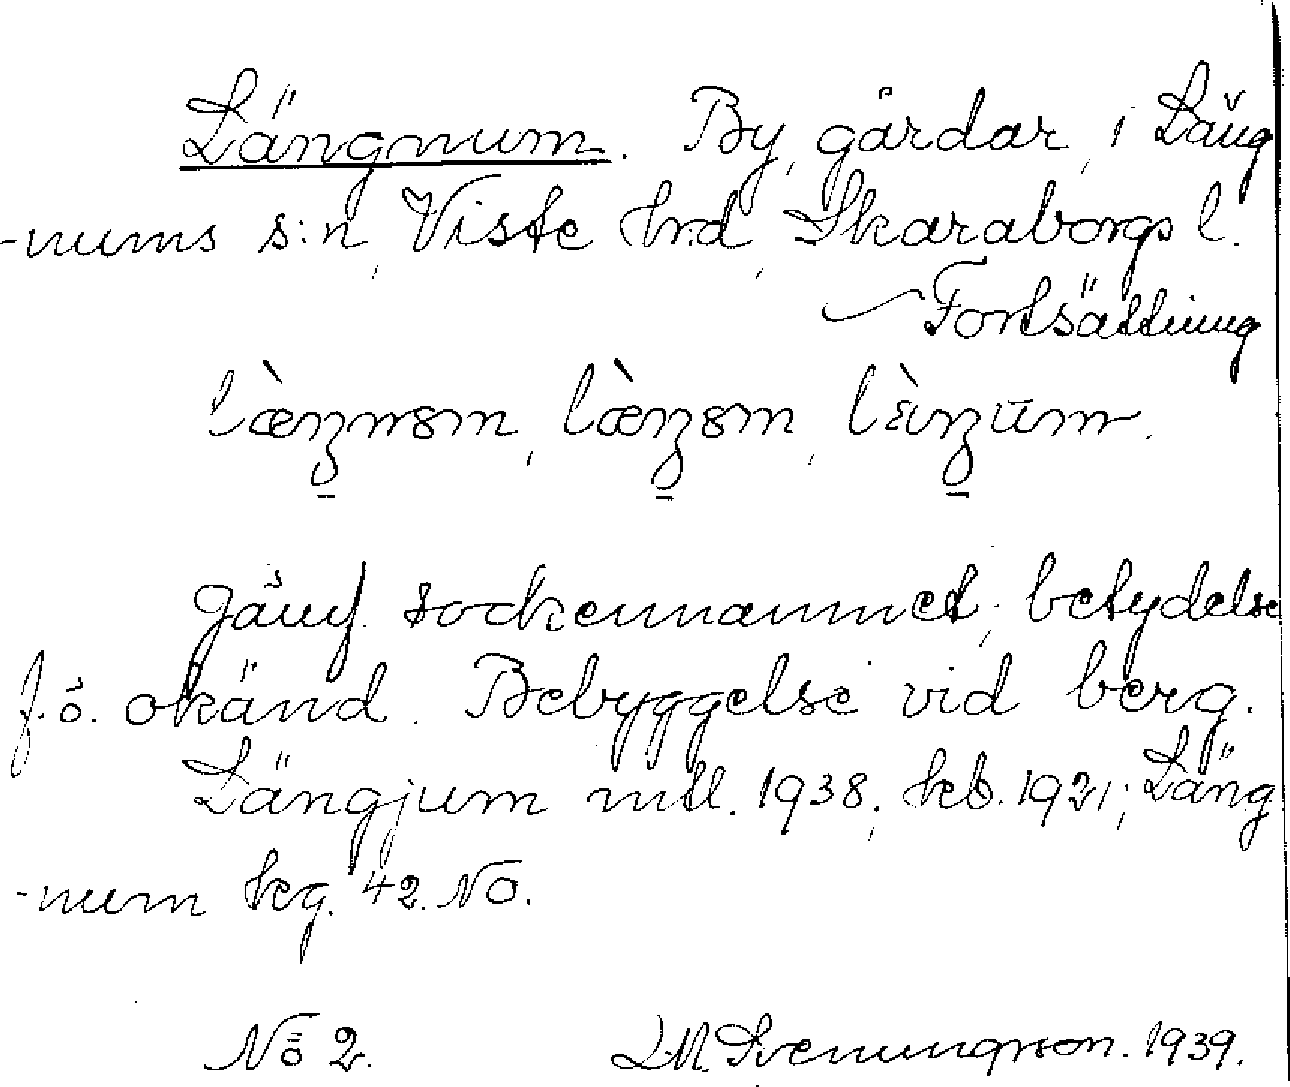 Längnum. By, gårdar, i Läng
-nums s:n, Viste hrd, Skaraborgs l.
Fortsättning
læ̀ŋnɞm, læ̀ŋɞm, lɛ̀ŋūm.
Jämf. sockennamnet; betydelse
f. ö. okänd. Bebyggelse vid berg.
Längjum mtl. 1938; kb. 1921; Läng
-num kg. 42. NO.
No 2. Svenungsson. 1939.